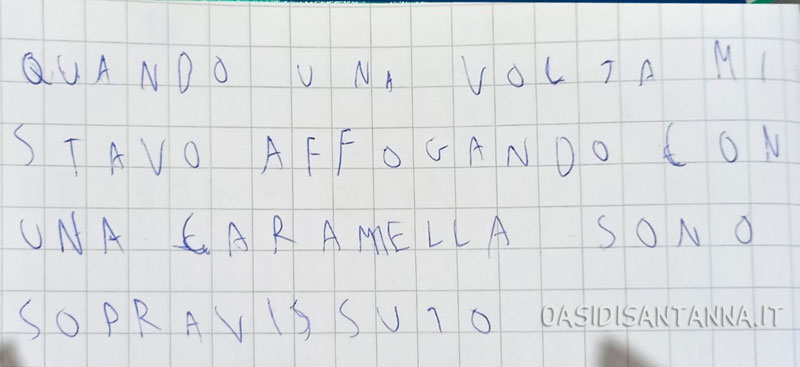 QUANDO UNA VOLTA MI
STAVO AFFOGANDO CON
UNA CARAMELLA SONO
SOPRAVISSUTO OASIDISANTANNA.IT